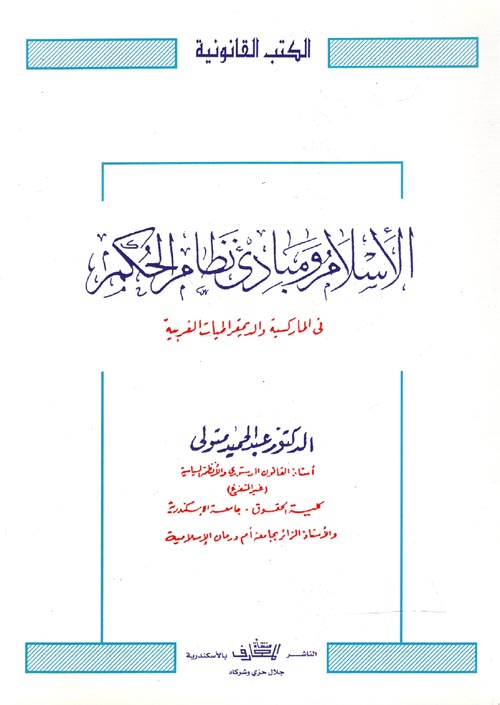 الكتب القانونية
الأسلام ومبادئ نظام الحكم
فى الماركسية والديمقراطيات الغربية
الدكتور عبد الحميد متولى
أستاذ القانون الدستوري والأنظمة السياسية
(غير المتفرغ)
كلية الحقوق - جامعة الإسكندرية
والأستاذ الزائر بجامعة أم درمان الإسلامية
الناشر منشأة المعارف بالأسكندرية
جلال حزي وشركاه